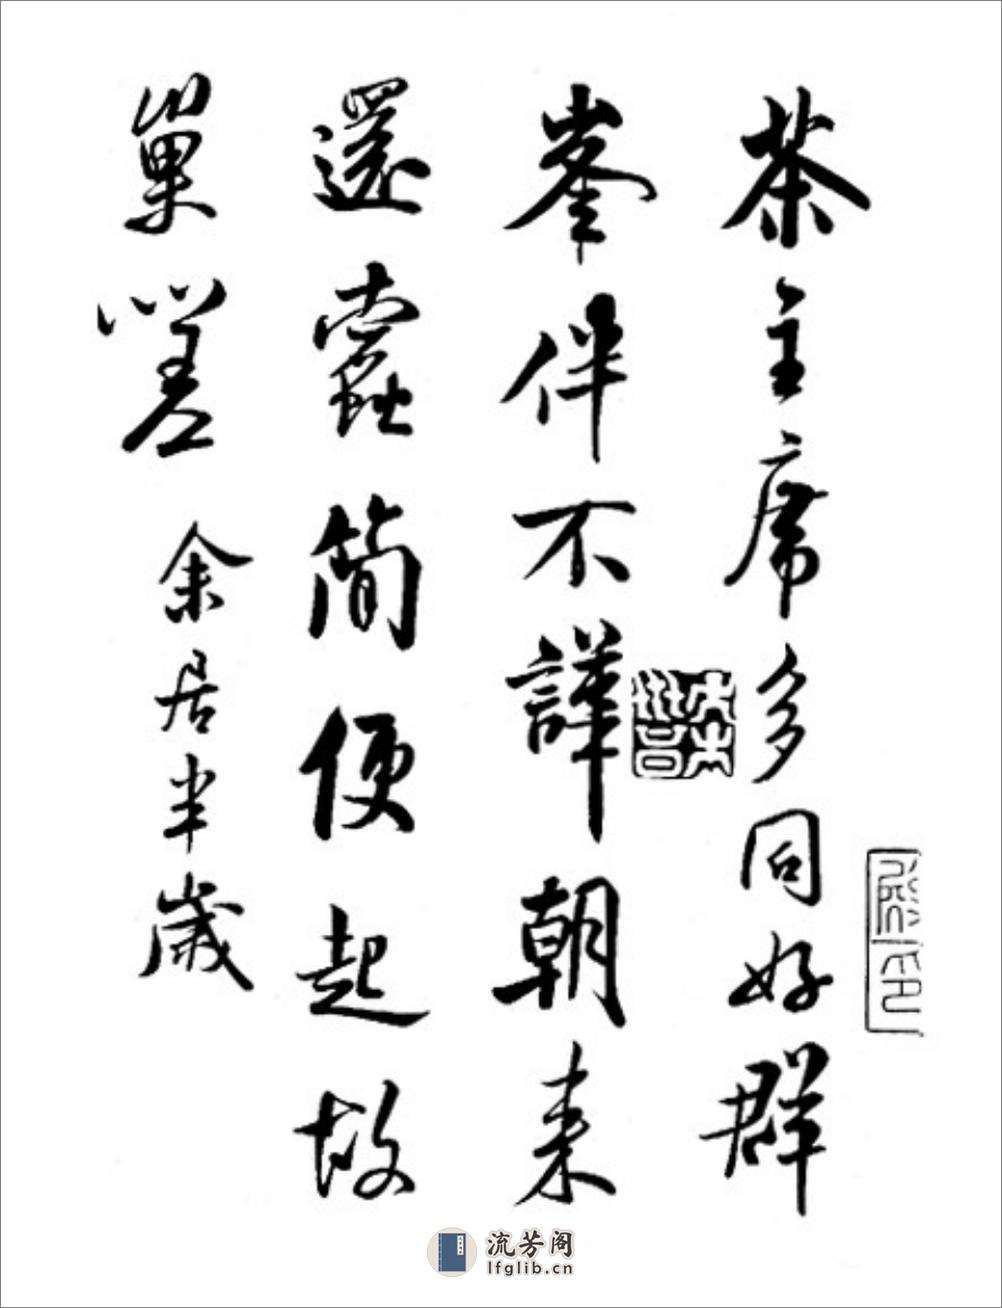 茶主席多同好群
峯伴不譁朝来
還蠹簡便起故
巢嗟 余居半歲
流芳阁
lfglib.cn